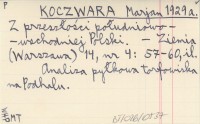 P
KOCZWARA Marjan 1929a.
Z przeszłości południowo-
-wschodniej Polski. - Ziemia
(Warszawa) 14, nr 4: 57-60, il.
Analiza pyłkowa torfowiska
na Podhalu.
GMT